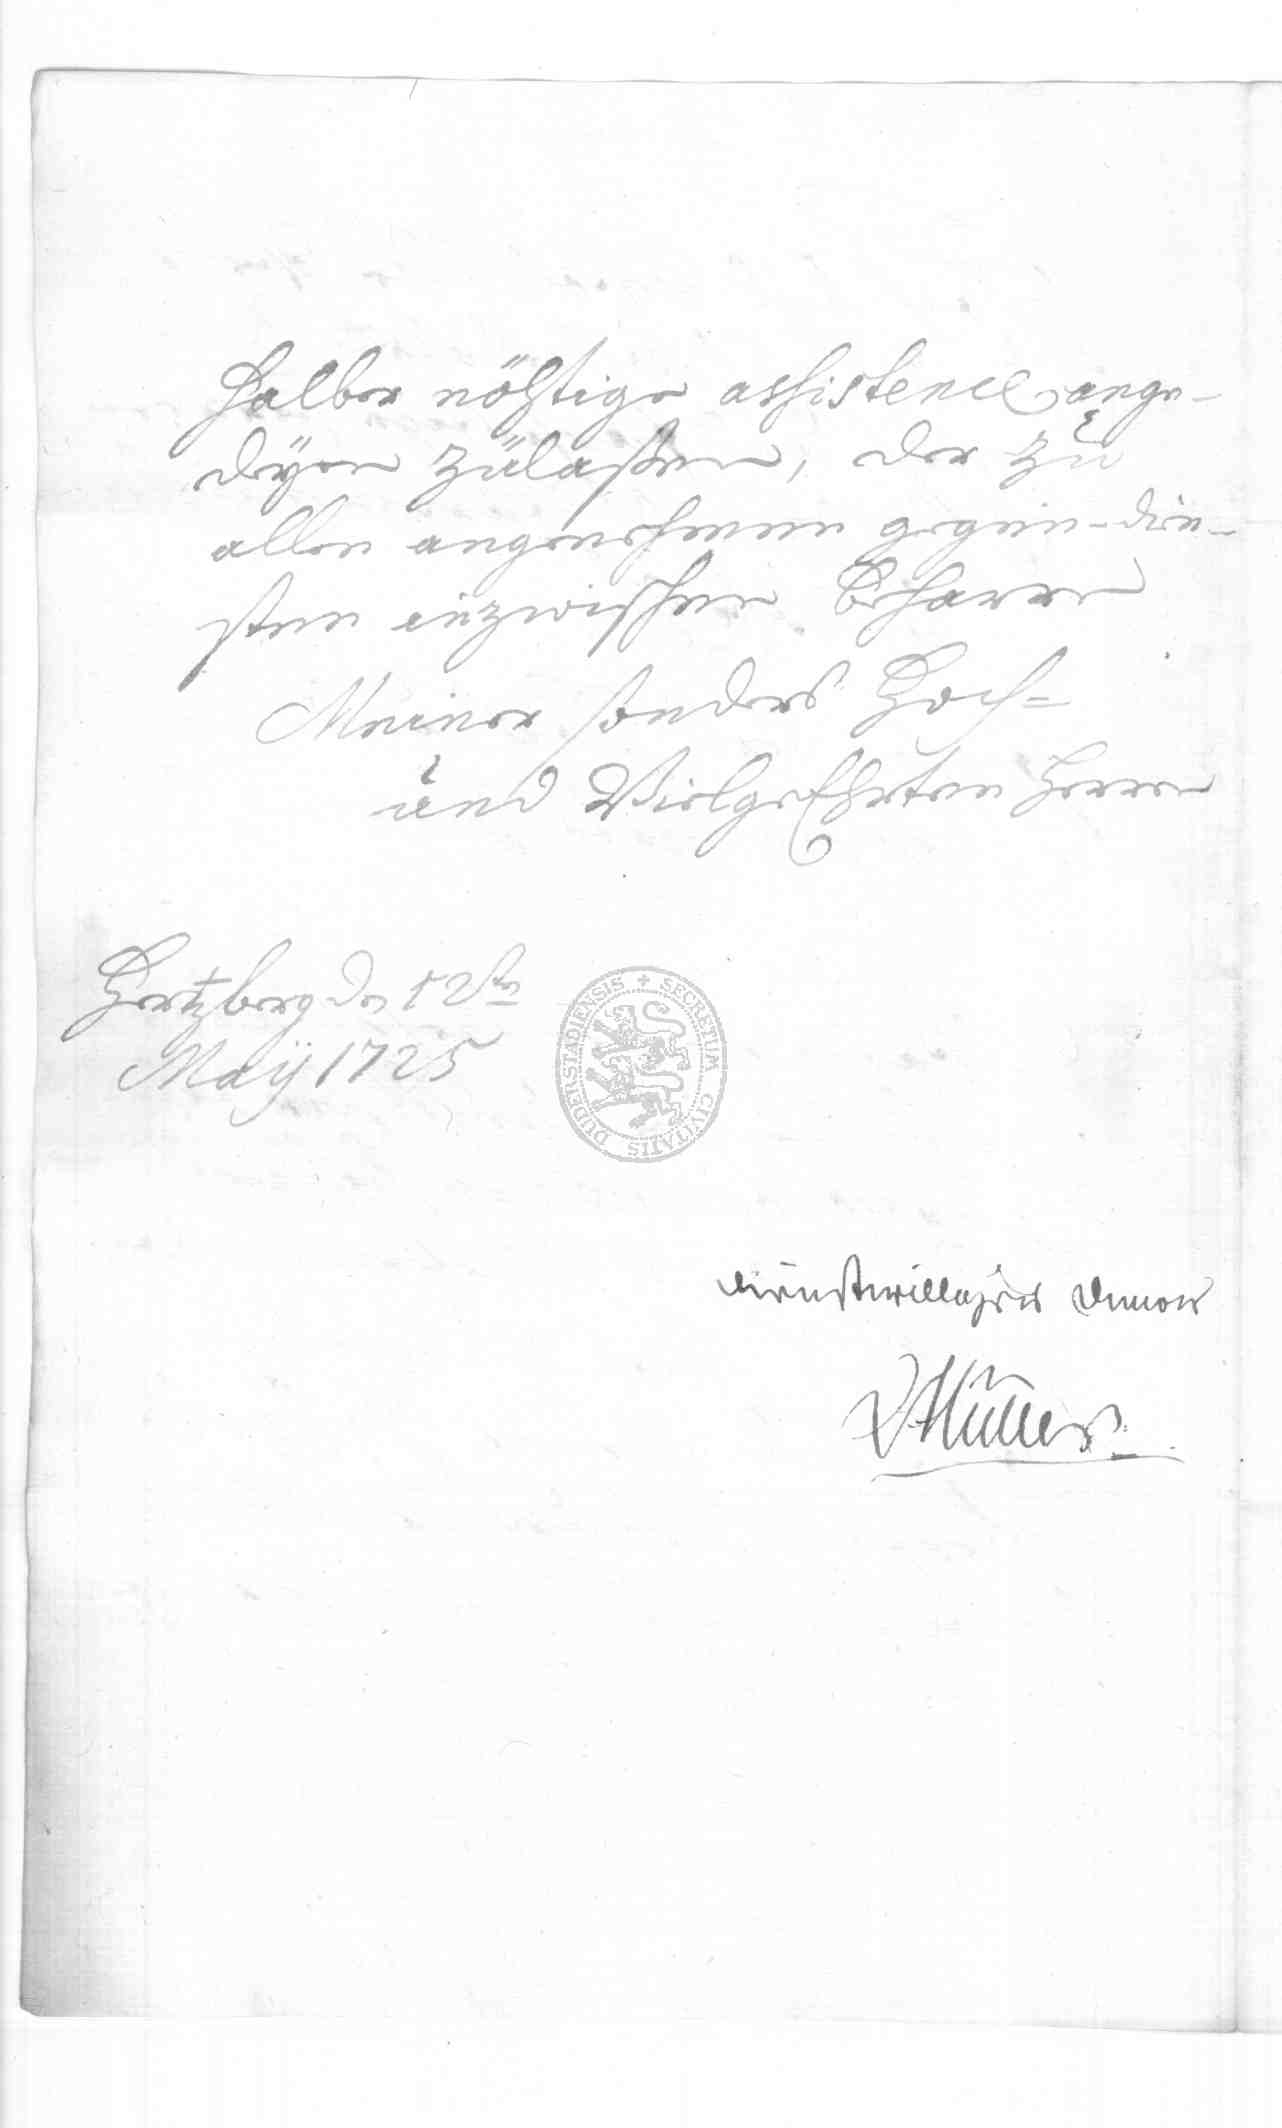 halber nöhtige assistence ange-
deyen zulaßen, der zu
allen angenehmen gegen-dien-
sten inzwischen beharre
Meiner sonders Hoch-
und VielgeEhrten Herren
Hertzberg den 12ten
Maÿ 1725
SECRETUM CIVITATIS DUDERSTADIENSIS
dienstwilligster Diener
Müller